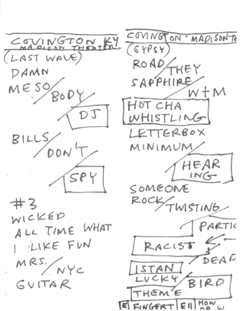 COVINGTON KY
MADISON THEATER
(LAST WAVE)
DAMN
MESO/
BODY
DJ
BILLS/
DON'T
SPY
#3
WICKED
ALL TIME WHAT
I LIKE FUN
MRS./
NYC
GUITAR
COVINGTON MADISON TH
(GYPSY)
ROAD/
THEY
SAPPHIRE/
W+M
HOT CHA
WHISTLING
LETTERBOX
MINIMUM/
HEAR
ING
SOMEONE
ROCK/
TWISTING
PARTIC
RACIST
DEAD
ISTAN
LUCKY/
BIRD
THEME
E FINGERT EII